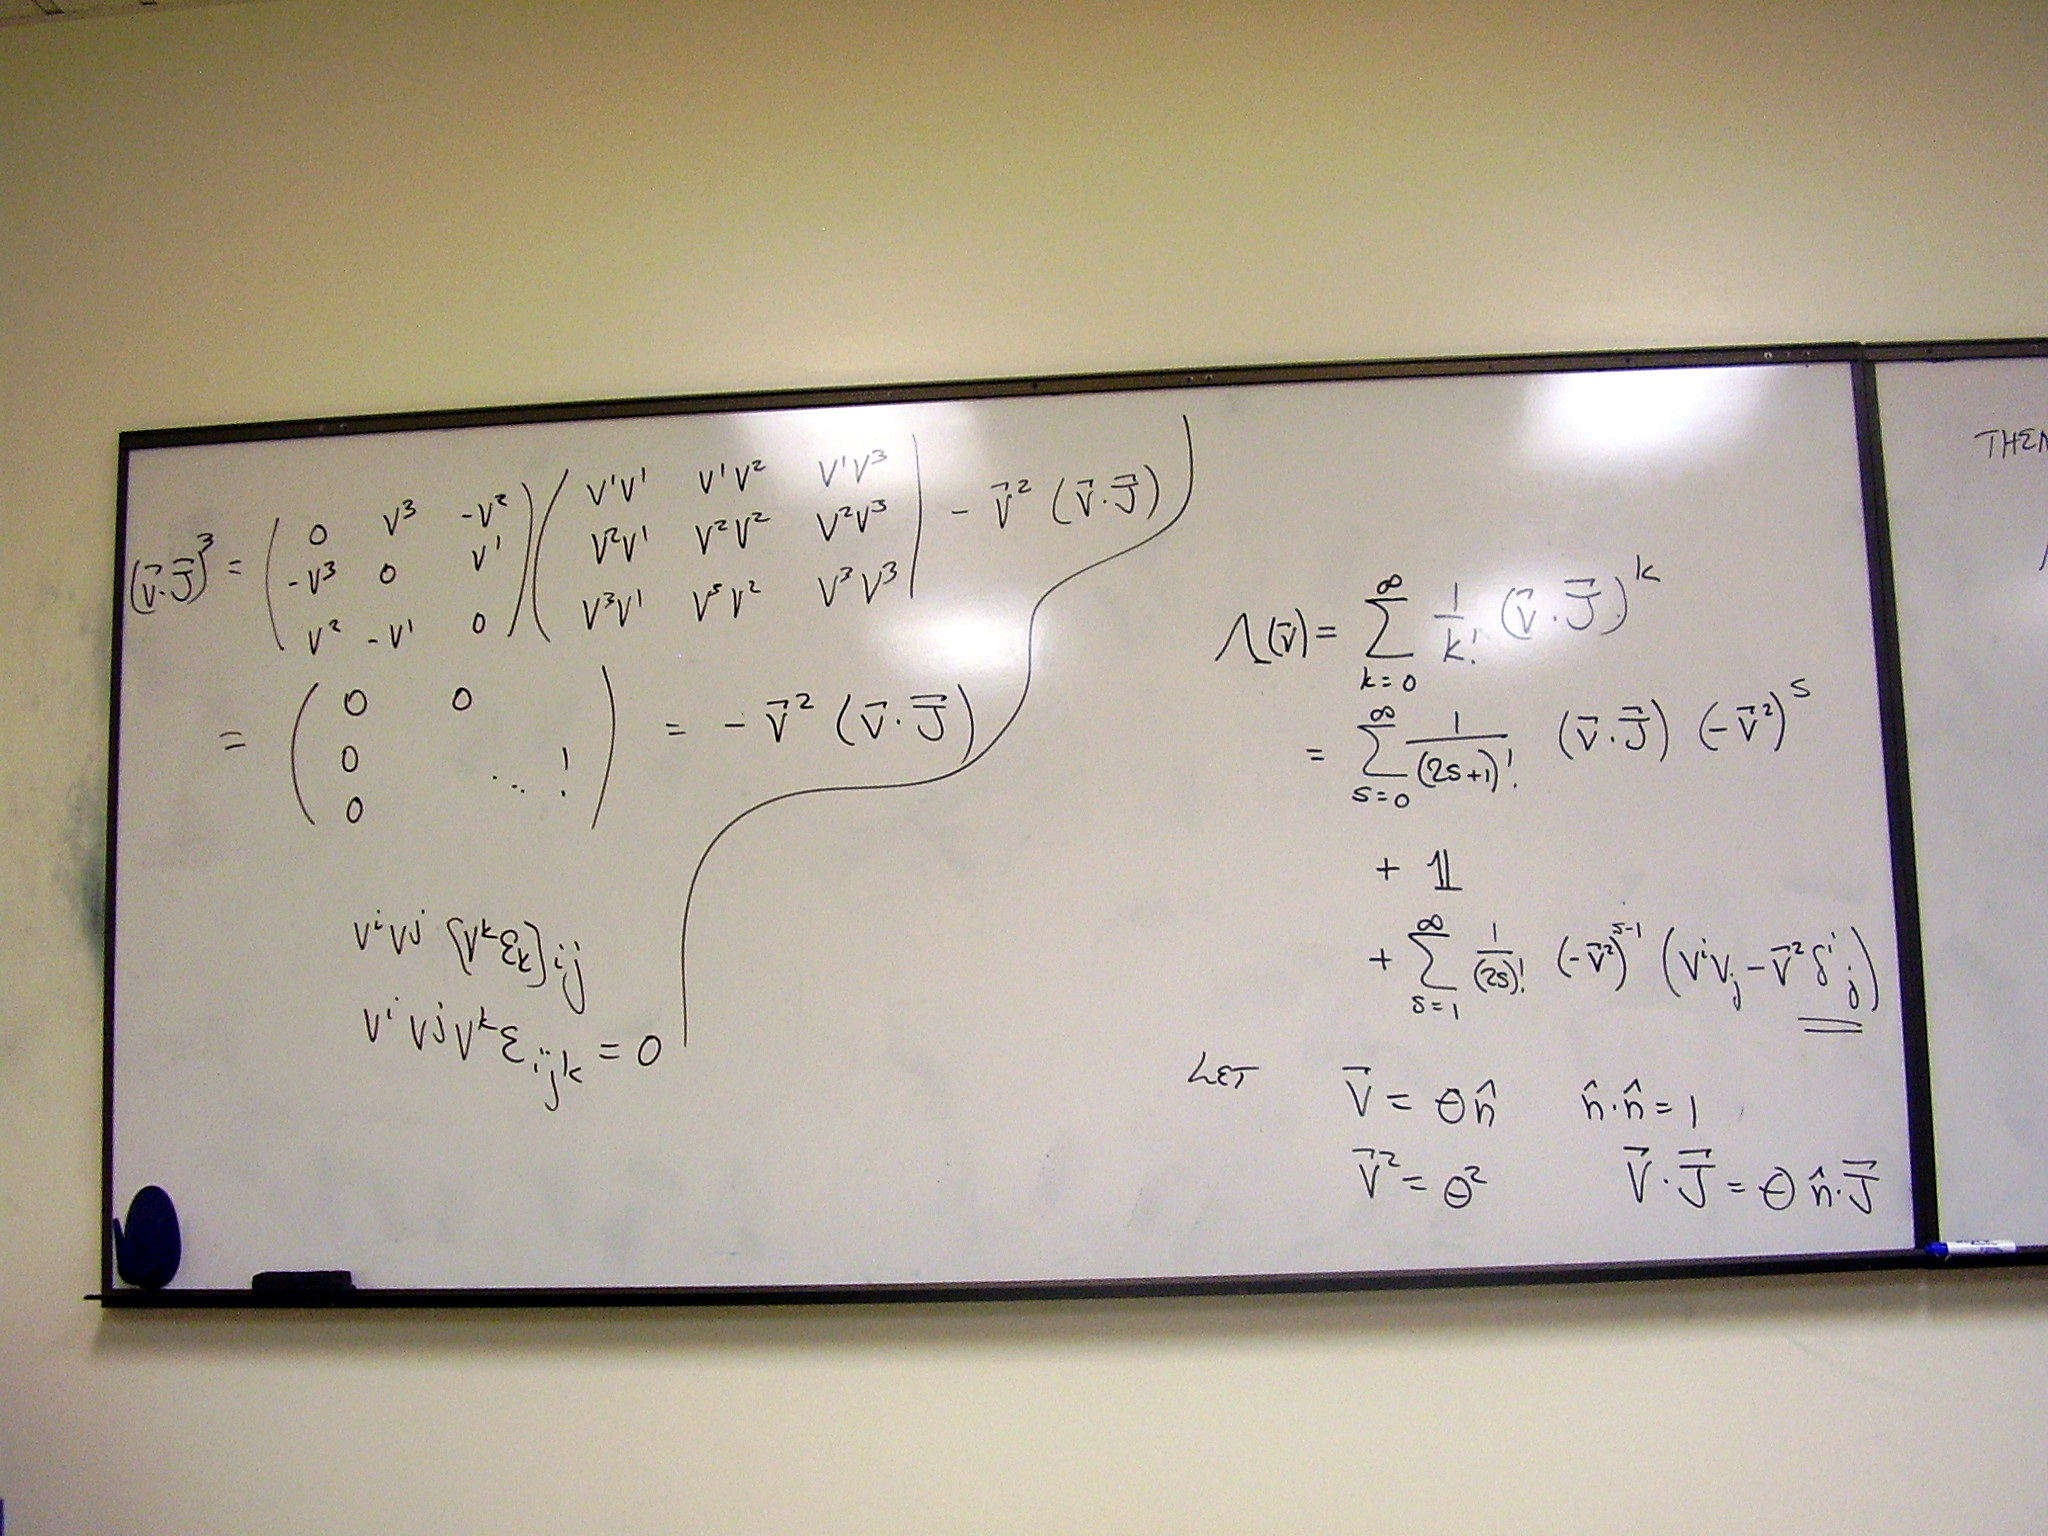 (v⃗·J⃗)³ = ( 0 v³ -v² ) ( v¹v¹ v¹v² v¹v³ ) - v⃗² (v⃗·J⃗)
-v³ 0 v¹ v²v¹ v²v² v²v³
v² -v¹ 0 v³v¹ v³v² v³v³
= ( 0 0 ) = - v⃗² (v⃗·J⃗)
0 ⋱ !
0
vⁱvʲ [vᵏεₖ]ᵢⱼ
vⁱvʲvᵏεᵢⱼₖ = 0
Λ(v⃗) = ∑_{k=0}^{∞} 1/k! (v⃗·J⃗)ᵏ
= ∑_{s=0}^{∞} 1/(2s+1)! (v⃗·J⃗) (-v⃗²)ˢ
+ 𝟙
+ ∑_{s=1}^{∞} 1/(2s)! (-v⃗²)ˢ⁻¹ (vⁱvⱼ - v⃗²δⁱⱼ)
LET v⃗ = θn̂ n̂·n̂ = 1
v⃗² = θ² v⃗·J⃗ = θ n̂·J⃗
THEN